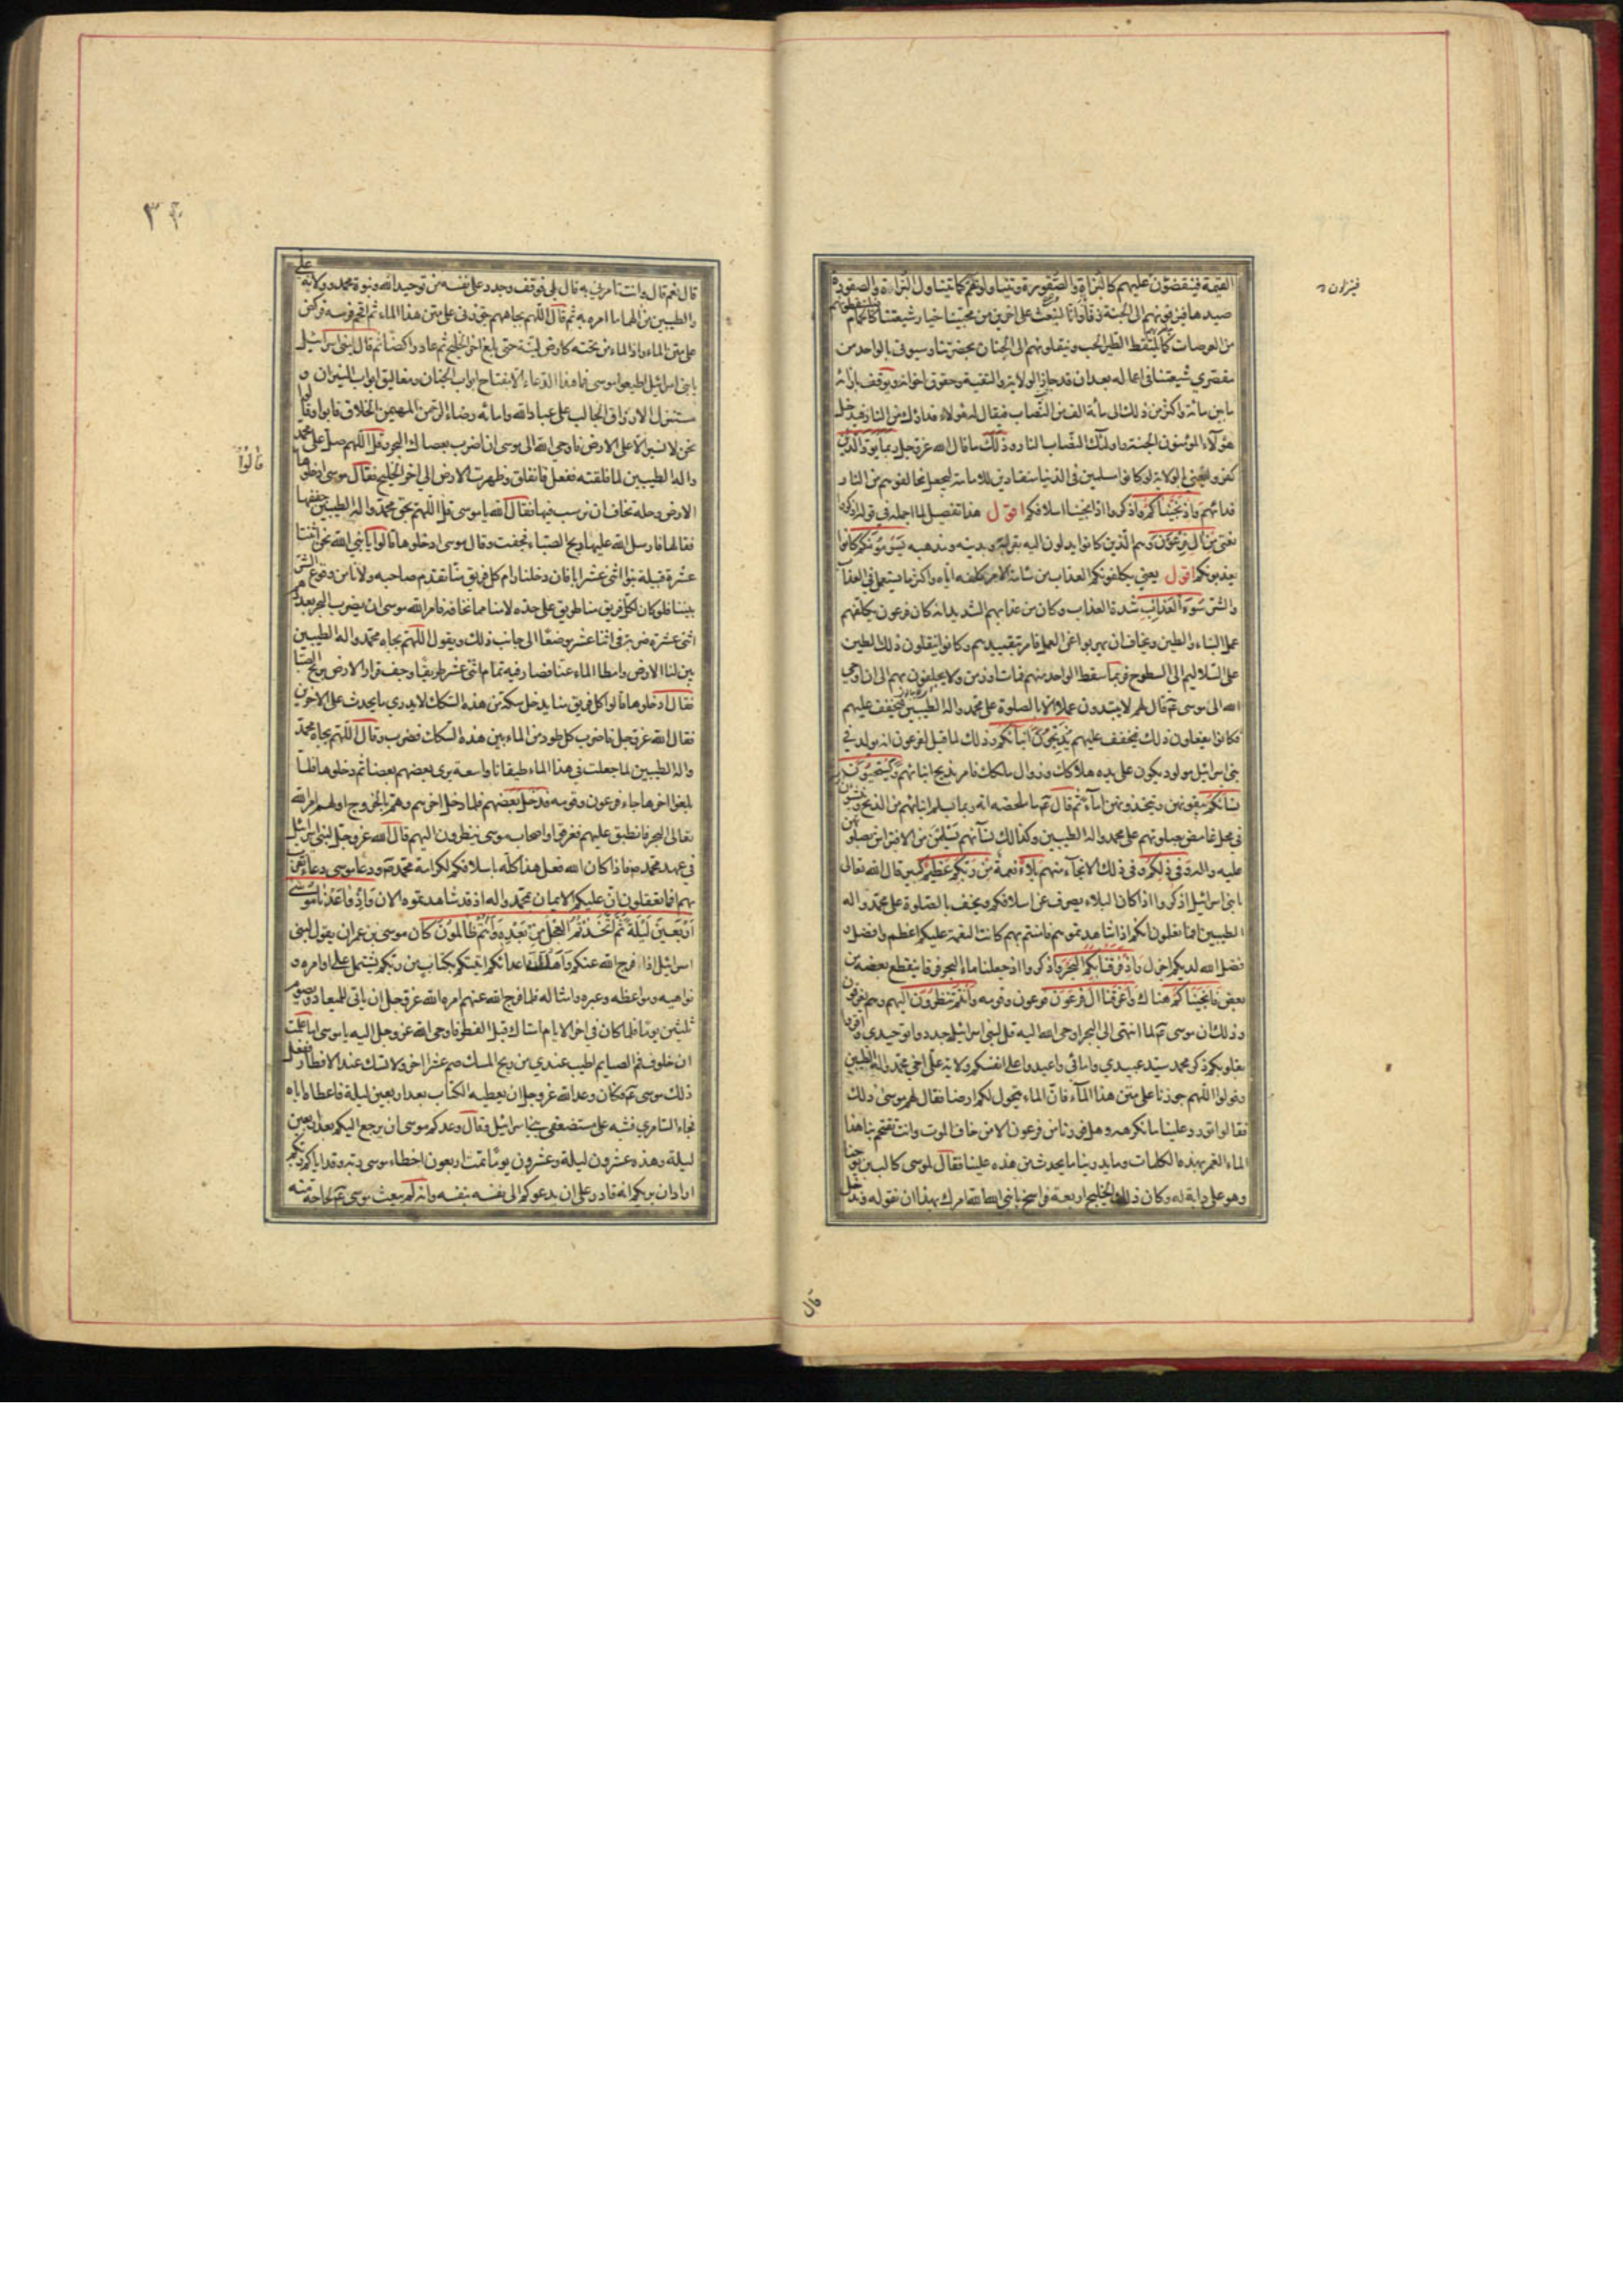 القيمة فينقضون عليهم كالبزاة والصقورة ويتناولونهم كما تتناول البزاة والصقورة
صيدها فيزفونهم الى الجنة زفا وانا لنبعث على اخرين من محبينا خيار شيعتنا كالحمام فيلتقطونهم
من العرصات كما يلتقط الطير الحب وينقلونهم الى الجنان بحضرتنا وسيوتى بالواحد من
مقصري شيعتنا في اعماله بعد ان قد حاز الولاية والتقية وحقوق اخوانه ويوقف بازائه
ما بين مائة واكثر من ذلك الى مائة الف من النصاب فيقال له هؤلاء فداؤك من النار فيدخل
هؤلاء المؤمنون الجنة واولئك النصاب النار وذلك ما قال الله عز وجل ربما يود الذين
كفروا يعني بالولاية لو كانوا مسلمين في الدنيا منقادين للامامة ليجعل مخالفوهم من النار
فدائهم واذ نجيناكم واذكروا اذ انجينا اسلافكم اقول هذا تفصيل لما اجمله في قوله اذكروا
نعمتي من ال فرعون وهم الذين كانوا يدلون اليه بقرابته وبدينه ومذهبه يسومونكم كانوا
يعذبونكم اقول يعني يكلفونكم العذاب من سامه الامر كلفه اياه واكثر ما يستعمل في العذاب
والشر سوء العذاب شدة العذاب وكان من عذابهم الشديد انه كان فرعون يكلفهم
عمل البناء والطين ويخاف ان يهربوا عن العمل فامر بتقييدهم وكانوا ينقلون ذلك الطين
على السلاليم الى السطوح فربما سقط الواحد منهم فمات او زمن ولا يحفلون بهم الى ان اوحى
الله الى موسى قال لهم لا يبتدون عملا الا بالصلوة على محمد واله الطيبين ليخفف عليهم
فكانوا يفعلون ذلك فيخفف عليهم يذبحون ابنائكم وذلك لما قيل لفرعون انه يولد في
بني اسرائيل مولود يكون على يده هلاكك وزوال ملكك فامر بذبح ابنائهم ويستحيون
نسائكم يبقونهن ويتخذونهن اماء ثم قال ما ملخصه انه ربما يسلم ابنائهم من الذبح وينشؤن
في محل غامض بصلوتهم على محمد واله الطيبين وكذلك نسائهم يسلمن من الافتراش بصلوتهن
عليه واله وفي ذلكم وفي ذلك الانجاء منهم بلاء نعمة من ربكم عظيم كبير قال الله تعالى
يا بني اسرائيل اذكروا اذ كان البلاء يصرف عن اسلافكم ويخفف بالصلوة على محمد واله
الطيبين افما تعلمون انكم اذا شاهدتموهم فامنتم بهم كانت النعمة عليكم اعظم وافضل و
فضل الله لديكم اجزل واذ فرقنا بكم البحر واذكروا اذ جعلنا ماء البحر فرقا ينقطع بعضه من
بعض فانجيناكم هناك واغرقنا ال فرعون فرعون وقومه وانتم تنظرون اليهم وهم يغرقون
وذلك ان موسى لما انتهى الى البحر اوحى الله اليه قل لبني اسرائيل جددوا توحيدي واقروا
بقلوبكم ذكر محمد سيد عبيدي وامائي واعيدوا على انفسكم ولاية علي اخي محمد واله الطيبين
وقولوا اللهم جوزنا على متن هذا الماء فان الماء يتحول لكم ارضا فقال لهم موسى ذلك
فقالوا تورد علينا ما نكرهه وهل فررنا من فرعون الا من خاف الموت وانت تقتحم بنا هذا
الماء الغمر بهذه الكلمات وما يدرينا ما يحدث من هذه علينا فقال لموسى كالب بن يوحنا
وهو على دابة له وكان ذلك الخليج اربعة فراسخ يا نبي الله الله امرك بهذا ان نقوله وندخل
فيزفون
قال
٣
قال نعم قال وانت تامرني به قال بلى فوقف وجدد على نفسه من توحيد الله ونبوة محمد وولاية علي
والطيبين من الهما ما امره به ثم قال اللهم بجاههم جوزني على متن هذا الماء ثم اقحم فرسه فركض
على متن الماء واذا الماء من تحته كارض لينة حتى بلغ اخر الخليج ثم عاد راكضا ثم قال لبني اسرائيل
يا بني اسرائيل اطيعوا موسى فما هذا الدعاء الا مفتاح ابواب الجنان ومغاليق ابواب النيران و
مستنزل الارزاق الجالب على عباد الله وامائه رضاء الرحمن المهيمن الخلاق فابوا وقالوا
نحن لا نسير الا على الارض فاوحى الله الى موسى ان اضرب بعصاك البحر وقل اللهم صل على محمد
واله الطيبين لما فلقته ففعل فانفلق وظهرت الارض الى اخر الخليج فقال موسى ادخلوها
الارض وحلة نخاف ان نرسب فيها فقال الله يا موسى قل اللهم بحق محمد واله الطيبين جففها
فقالها فارسل الله عليها ريح الصباء فجفت وقال موسى ادخلوها قالوا يا نبي الله نحن اثنتا
عشرة قبيلة بنو اثنى عشر ابا فان دخلنا رام كل فريق منا تقدم صاحبه ولا نامن وقوع الشر
بيننا فلو كان لكل فريق منا طريق على حدة لامنا مما نخافه فامر الله موسى ان يضرب البحر بعددهم
اثنى عشرة ضربة في اثنا عشر موضعا الى جانب ذلك ويقول اللهم بجاه محمد واله الطيبين
بين لنا الارض وامط الماء عنا فصار فيه تمام اثنى عشر طريقا وجف قرار الارض بريح الصبا
فقال ادخلوها قالوا كل فريق منا يدخل سكة من هذه السكك لا يدري ما يحدث على الاخرين
فقال الله عز وجل فاضرب كل طود من الماء بين هذه السكك فضرب وقال اللهم بجاه محمد
واله الطيبين لما جعلت في هذا الماء طيقانا واسعة يرى بعضهم بعضا ثم دخلوها فلما
بلغوا اخرها جاء فرعون وقومه فدخل بعضهم فلما دخل اخرهم وهم بالخروج اولهم امر الله
تعالى البحر فانطبق عليهم فغرقوا واصحاب موسى ينظرون اليهم قال الله عز وجل لبني اسرائيل
في عهد محمد فاذا كان الله فعل هذا كله باسلافكم لكرامة محمد ودعاء موسى دعاء تقرب
بهم افما تعقلون ان عليكم الايمان بمحمد واله اذ قد شاهدتموه الان واذ واعدنا موسى
اربعين ليلة ثم اتخذتم العجل من بعده وانتم ظالمون كان موسى بن عمران يقول لبني
اسرائيل اذا فرج الله عنكم واهلك اعدائكم اتيتكم بكتاب من ربكم يشتمل على اوامره و
نواهيه ومواعظه وعبره وامثاله فلما فرج الله عنهم امره الله عز وجل ان ياتي للميعاد ويصوم
ثلثين يوما فلما كان في اخر الايام استاك قبل الفطر فاوحى الله عز وجل اليه يا موسى اما علمت
ان خلوف فم الصايم اطيب عندي من ريح المسك صم عشرا اخر ولا تستك عند الافطار ففعل
ذلك موسى فكان وعد الله عز وجل ان يعطيه الكتاب بعد اربعين ليلة فاعطاه اياه
فجاء السامري فشبه على مستضعفي بني اسرائيل وقال وعدكم موسى ان يرجع اليكم بعد اربعين
ليلة وهذه عشرون ليلة وعشرون يوما تمت اربعون اخطاء موسى ربه وقد اياكم ربكم
اراد ان يريكم انه قادر على ان يدعوكم الى نفسه بنفسه وانه لم يبعث موسى لحاجة منه
قالوا